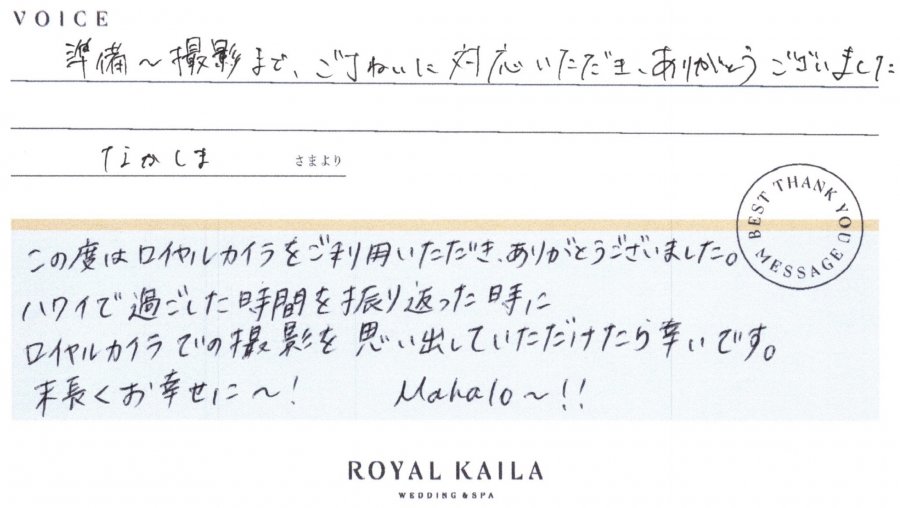 VOICE
準備〜撮影まで、ごていねいに対応いただき、ありがとうございました
なかしま さまより
BEST THANK YOU MESSAGE
この度はロイヤルカイラをご利用いただき、ありがとうございました。
ハワイで過ごした時間を振り返った時に
ロイヤルカイラでの撮影を思い出していただけたら幸いです。
末長くお幸せに〜! Mahalo〜!!
ROYAL KAILA
WEDDING & SPA